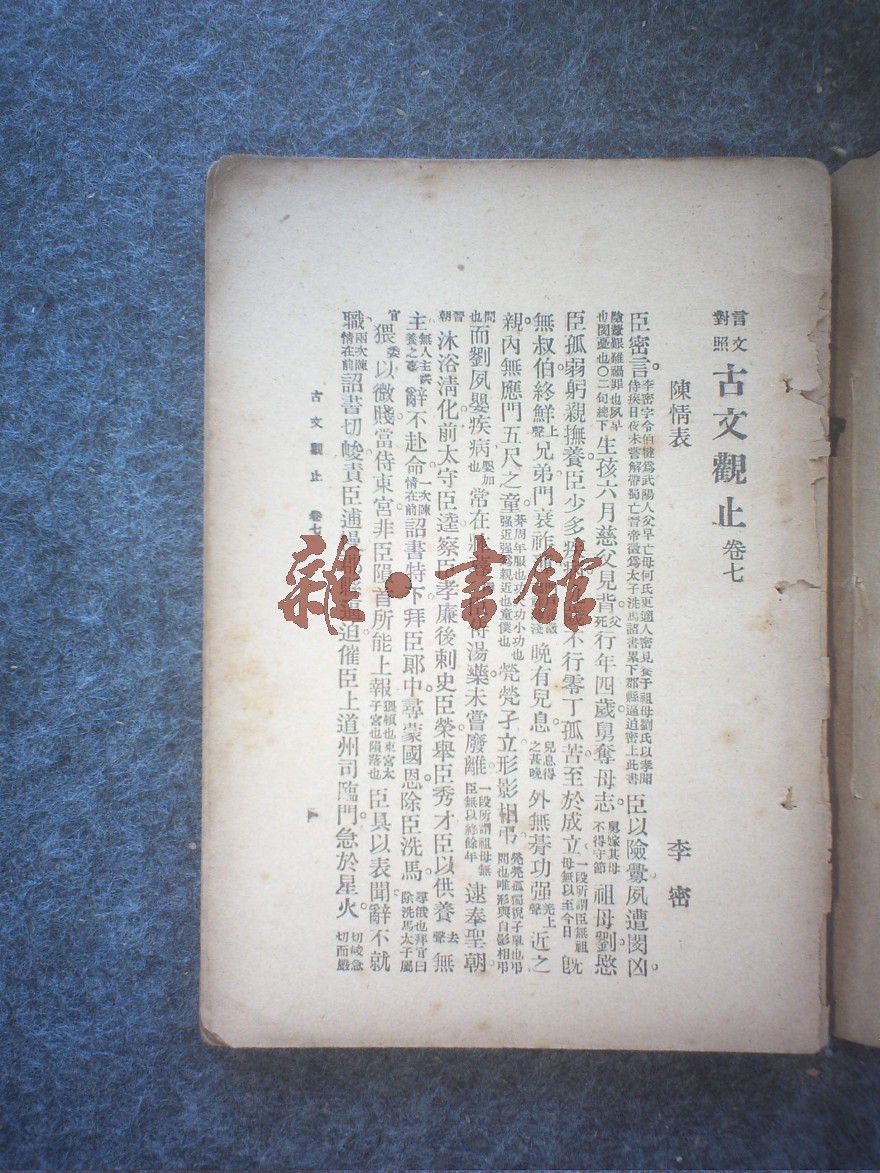 言文對照 古文觀止 卷七
陳情表 李密
臣密言。李密字令伯犍爲武陽人父早亡母何氏更適人密見養于祖母劉氏以孝聞侍疾日夜未嘗解帶蜀亡晉帝徵爲太子洗馬詔書累下郡縣逼迫密上此書 臣以險釁夙遭閔凶。
險釁艱難禍罪也夙早也閔憂也〇二句總下 生孩六月慈父見背。父死 行年四歲舅奪母志。舅嫁其母不得守節 祖母劉愍
臣孤弱躬親撫養。臣少多疾 不行零丁孤苦至於成立。一段所謂臣無祖母無以至今日 旣
無叔伯終鮮上聲兄弟門衰祚 晚有兒息。兒息得之甚晚 外無朞功强羌上聲近之
親內無應門五尺之童。朞周年服也功大功小功也强近强爲親近也童僕也 煢煢孑立形影相弔。煢煢孤獨貌孑單也弔問也唯形與自影相弔
問也 而劉夙嬰疾病嬰加也 常在 湯藥未嘗廢離。一段所謂祖母無臣無以終餘年 逮奉聖朝
晉朝 沐浴淸化前太守臣逵察臣孝廉後刺史臣榮舉臣秀才臣以供養去聲無
主。無人主供養之事 辭不赴命。一次陳情在前 詔書特下拜臣郞中尋蒙國恩除臣洗馬。尋俄也拜官曰除洗馬太子屬
官 猥委以微賤當侍東宮非臣隕首所能上報。猥頓也東宮太子宮也隕落也 臣具以表聞辭不就
職。兩次陳情在前 詔書切峻責臣逋慢 逼迫催臣上道州司臨門急於星火。切峻急切而嚴
古文觀止 卷七
雜·書館